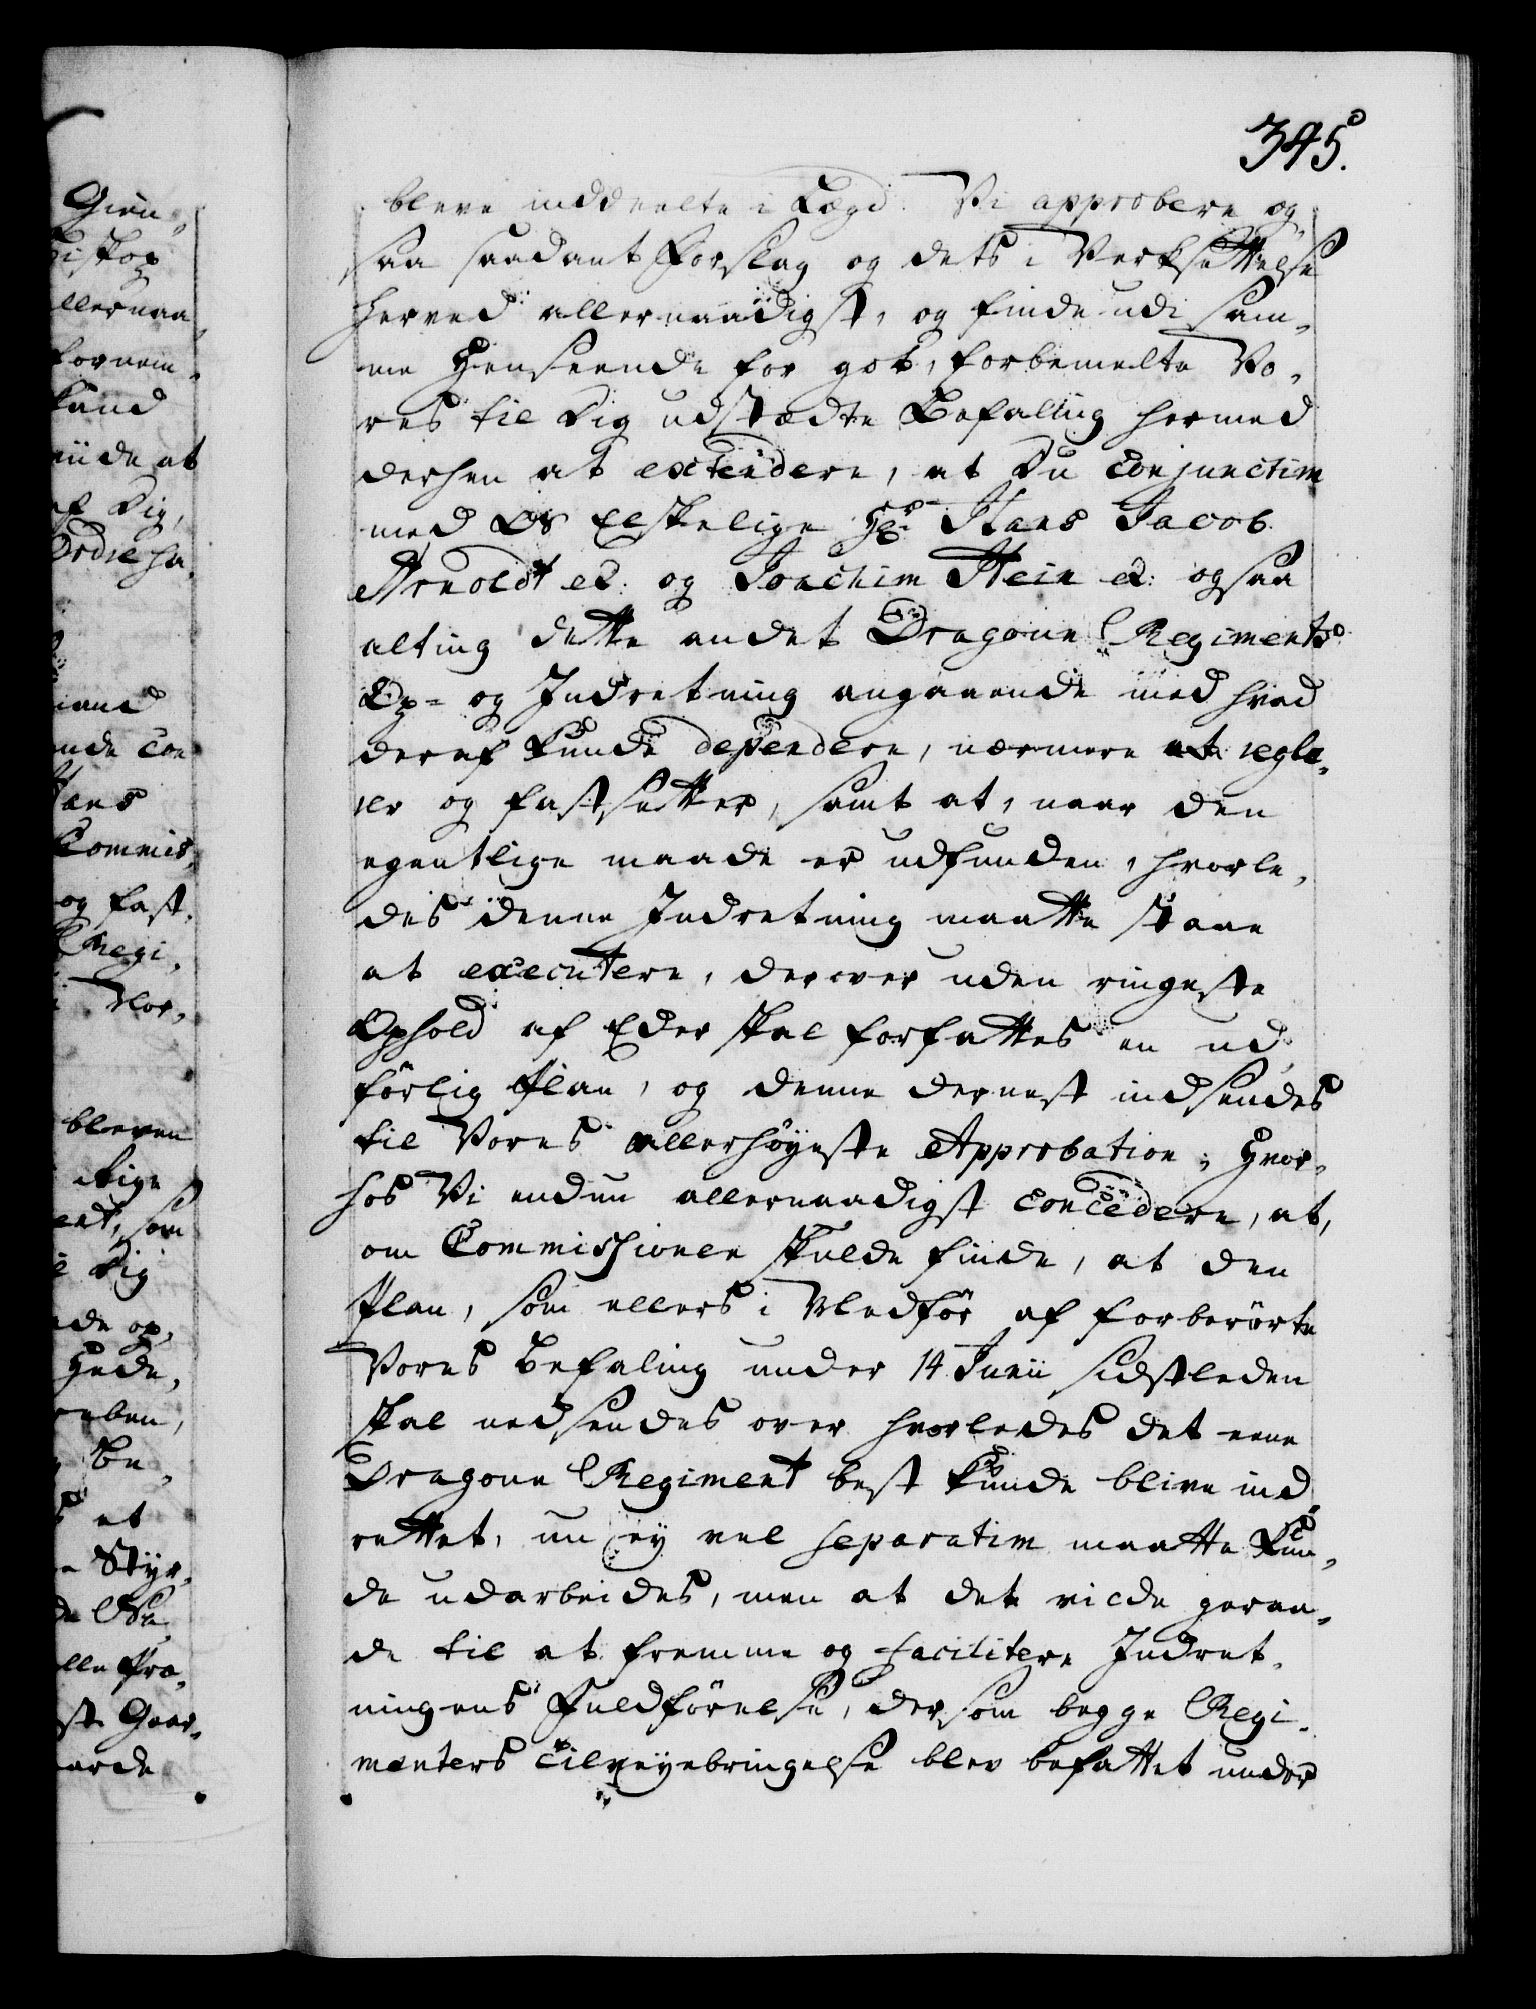 345.
bleve inddeelte i Lægd. Vi approbere og,
saa saadant Forslag og dets i Verksettelse
herved allernaadigst, og finde udi sam,
me Henseende for got, forbemelte Vo,
res til Dig udstædte Befaling hermed
derhen at extendere, at Du Conjunctim
med Os Elskelige Hr. Hans Jacob
Arnoldt etc: og Joachim Hein etc: ogsaa
alting dette andet Dragoun Regiments
Op- og Indretning angaaende med hvad
deraf kunde dependere, nærmere at regle,
rer og fastsetter, samt at, naar den
egentlige maade er udfunden, hvorle,
des denne Indretning maatte staae
at executere, derover uden ringeste
Ophold af Eder skal forfattes en ud,
førlig Plan, og denne dernest indsendes
til Vores allerhøyeste Approbation; Hvor,
hos Vi endnu allernaadigst concedere, at,
om Commissionen skulde finde, at den
Plan, som ellers i Medfør af forberørte
Vores Befaling under 14 Junii sidstleden
skal nedsendes over hvorledes det eene
Dragoun Regiment best kunde blive ind,
rettet, nu ey vel separatim maatte kun,
de udarbeides, men at det vilde geraa,
de til at fremme og facilitere Indret,
ningens Fuldførelse, dersom begge Regi,
menters tilveyebringelse blev befattet under
Gien,
Biskop
allernaa,
fornem,
kand
at
af Dig,
mand
Con
Hans
Commis,
og fast,
Regi,
Nor,
bleven
som
Dig
op,
Be,
et
Styr,
Pro,
Gaar,